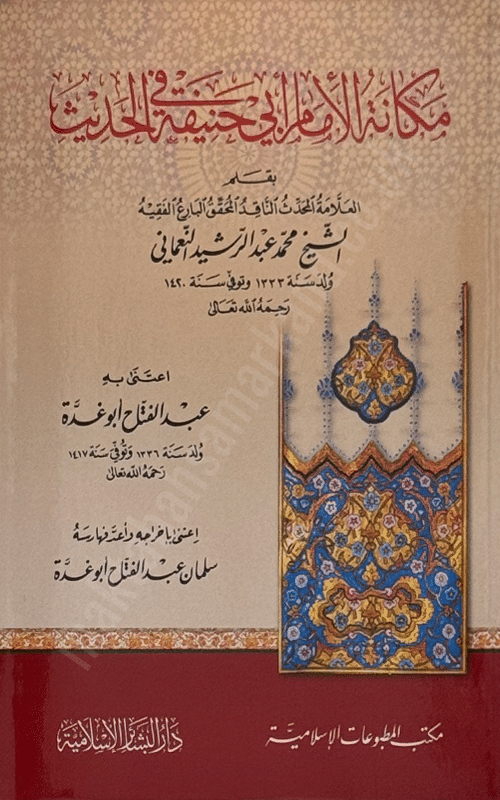 مكانة الإمام أبي حنيفة في الحديث
بقلم
العلامة المحدث الناقد المحقق البارع الفقيه
الشيخ محمد عبد الرشيد النعماني
ولد سنة ١٣٣٣ وتوفي سنة ١٤٢٠
رحمه الله تعالى
اعتنى به
عبد الفتاح أبو غدة
ولد سنة ١٣٣٦ وتوفي سنة ١٤١٧
رحمه الله تعالى
اعتنى بإخراجه وأعد فهارسه
سلمان عبد الفتاح أبو غدة
مكتب المطبوعات الإسلامية
دار البشائر الإسلامية